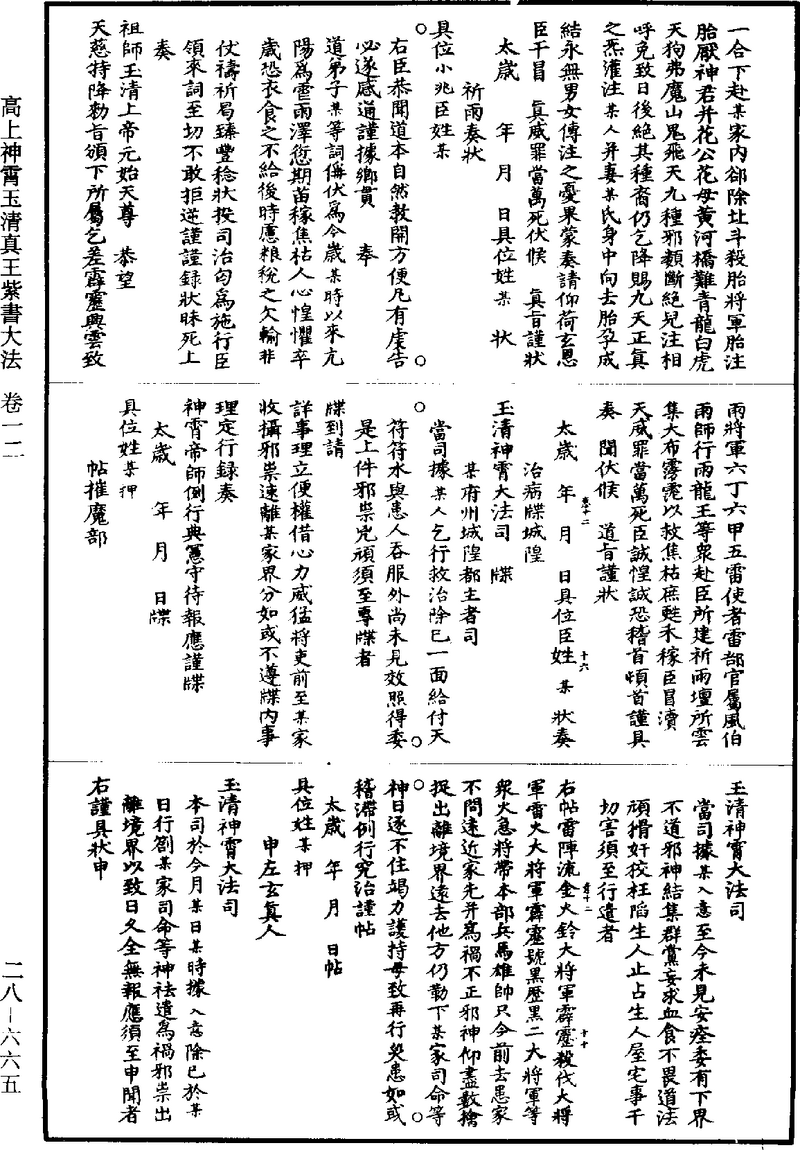 一合下赴某家内卻除北斗殺胎將軍胎注
胎厭神君并花公花母黄河橋難青龍白虎
天狗弗魔山鬼飛天九種邪類斷絶兒注相
呼免致日後絶其種裔仍乞降賜九天正真
之炁灌注某人并妻某氏身中向去胎孕成
結永無男女傳注之憂果蒙奏請仰荷玄恩
臣干冒　真威罪當萬死伏候　真旨謹狀
太歲　年　月　日具位姓某　狀
祈雨奏狀
具位小兆臣姓某
右臣恭聞道本自然教開方便凡有虔告
必遂感通謹據鄉貫　奉
道弟子某等詞偁伏爲今歲某時以來亢
陽爲雪雨澤愆期苗稼焦枯人心惶懼卒
歲恐衣食之不給後時慮粮稅之欠輸非
仗禱祈曷臻豐稔狀投司治匄爲施行臣
領來詞至切不敢拒逆謹謹録狀昧死上
奏
祖師玉清上帝元始天尊　恭望
天慈特降勑旨頒下所屬乞差霹靂興雲致
雨將軍六丁六甲五雷使者雷部官屬風伯
雨師行雨龍王等衆赴臣所建祈雨壇所雲
集大布霧霓以救焦枯庶甦禾稼臣冒瀆
天威罪當萬死臣誠惶誠恐稽首頓首謹具
奏　聞伏候　道旨謹狀
卷十二　十六
太歲　年　月　日具位臣姓某狀奏
治病牒城隍
玉清神霄大法司　牒
某府州城隍都主者司
當司據某人乞行救治除已一面給付天
符符水與患人吞服外尚未見效照得委
是上件邪祟兇頑須至專牒者
牒到請
詳事理立便權借心力威猛將吏前至某家
收攝邪祟速離某家界分如或不遵牒内事
理定行録奏
神霄帝師倒行典憲守待報應謹牒
太歲　年　月　日牒
具位姓某押
帖摧魔部
玉清神霄大法司
當司據某入意至今未見安痊委有下界
不道邪神結集群黨妄求血食不畏道法
頑猾奸狡枉陷生人止占生人屋宅事干
切害須至行遣者
卷十二　十七
右帖雷陣流金火鈴大將軍霹靂殺伐大將
軍雷火大將軍霹靂號黑歷黑二大將軍等
衆火急將帶本部兵馬雄帥只今前去患家
不問遠近家先并爲禍不正邪神仰盡數擒
捉出離境界遠去他方仍勤下某家司命等
神日逐不住竭力護持毋致再行災患如或
稽滯倒行究治謹帖
太歲　年　月　日帖
具位姓某押
申左玄真人
玉清神霄大法司
本司於今月某日某時據入意除已於某
日行劄某家司命等神祛遣爲禍邪祟出
離境界以致日久全無報應須至申聞者
右謹具狀申
高上神霄玉清真王紫書大法　卷一二
二八—六六五